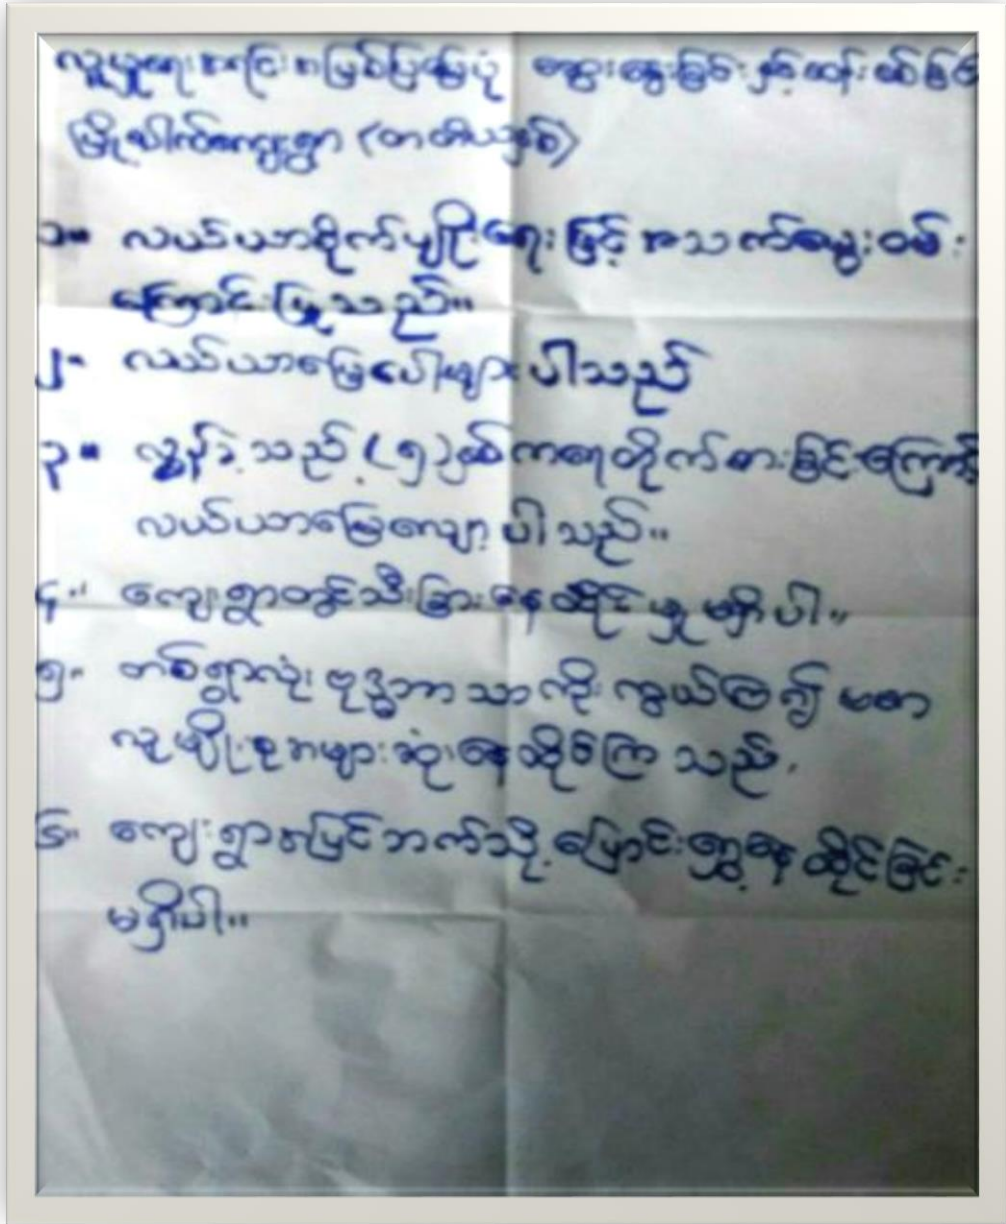 လူမှုရေးအရင်းအမြစ်ပြမြေပုံ ဆွေးနွေးခြင်းနှင့်ဆန်းစစ်ခြင်း
မြို့ပေါက်ကျေးရွာ (တတိယနှစ်)
၁။ လယ်ယာစိုက်ပျိုးရေးဖြင့် အသက်မွေးဝမ်း
ကြောင်းပြုသည်။
၂။ လယ်ယာမြေပေါ်များပါသည်
၃။ လွန်ခဲ့သည့် (၅) နှစ်ကရေတိုက်စားခြင်းကြောင့်
လယ်ယာမြေလျော့ပါသည်။
၄။ ကျေးရွာတွင်သီးခြားနေထိုင်မှုမရှိပါ။
၅။ တစ်ရွာလုံး ဗုဒ္ဓဘာသာကိုးကွယ်ကြ၍ ဗမာ
လူမျိုးစုအများဆုံးနေထိုင်ကြသည်.
၆။ ကျေးရွာအပြင်ဘက်သို့ပြောင်းရွှေ့နေထိုင်ခြင်း
မရှိပါ။